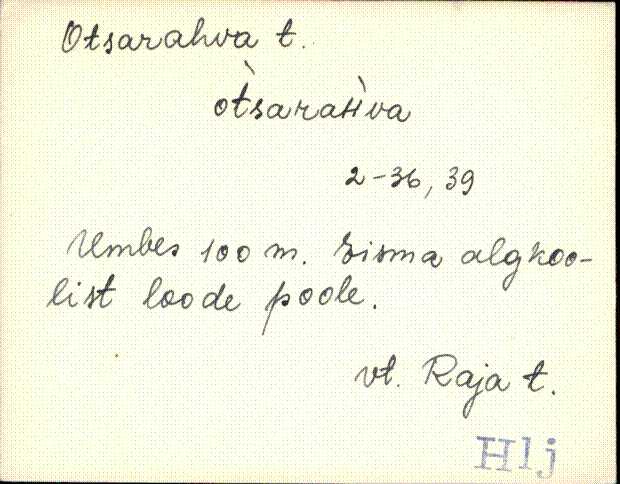 Otsarahva t.
ot̀saraʜ̀va
2-36, 39
Umbes 100 m. Eisma algkoo-
list loode poole.
vt. Raja t.
Hlj